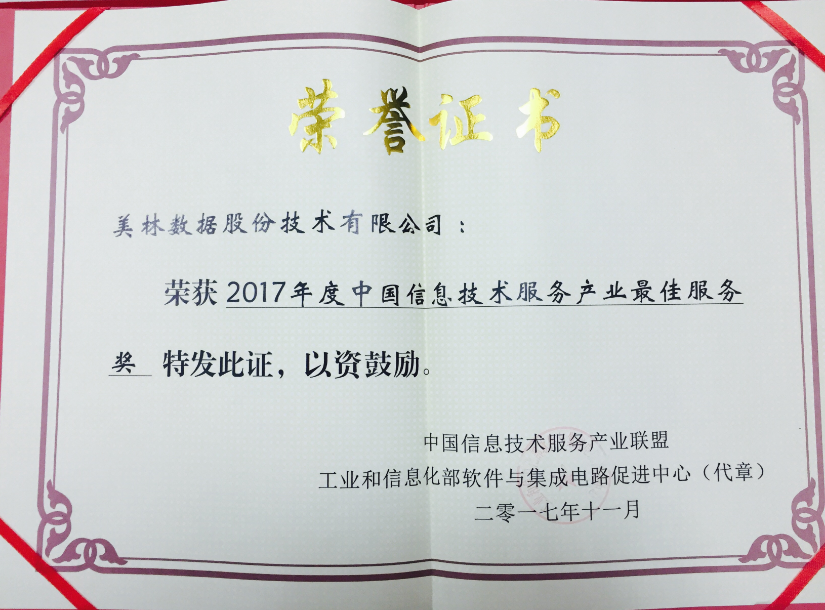 荣誉证书
美林数据股份技术有限公司：
荣获 2017年度中国信息技术服务产业最佳服务
奖 特发此证，以资鼓励。
中国信息技术服务产业联盟
工业和信息化部软件与集成电路促进中心（代章）
二零一七年十一月